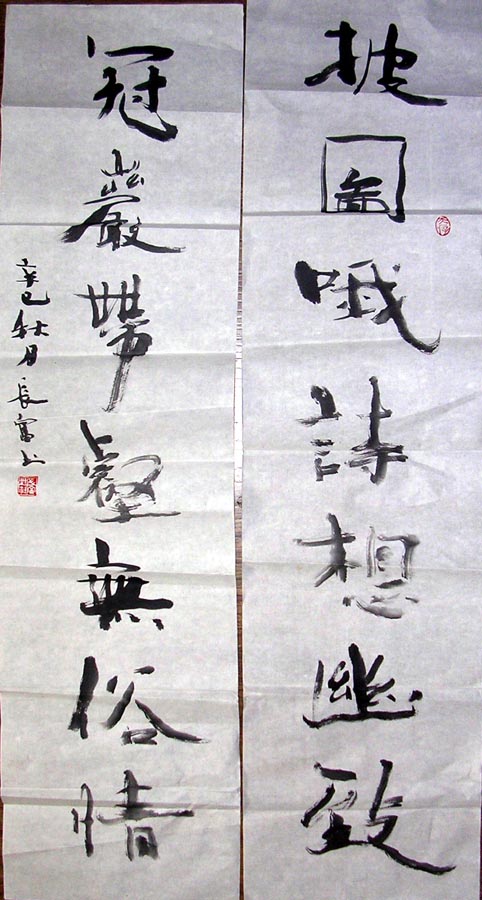 披圖哦詩想幽致
冠巖帶壑無俗情
辛巳秋月長富书